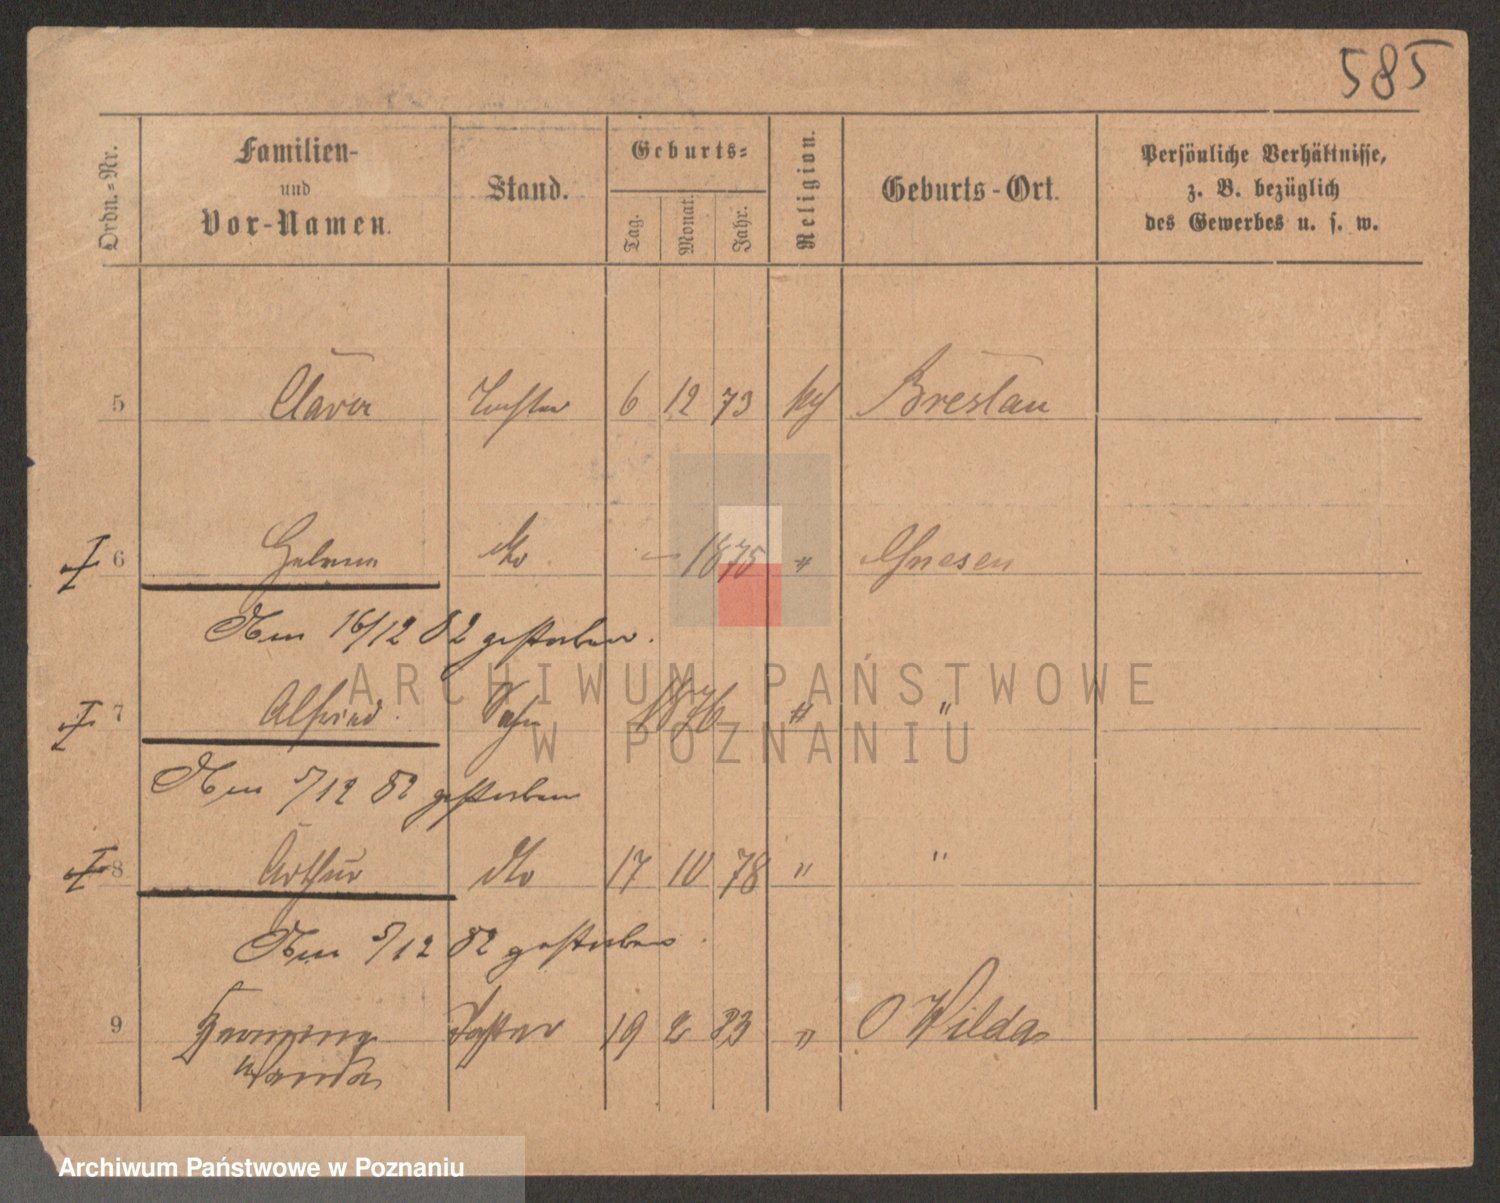 585
Ordn.-Nr.
Familien-
und
Vor-Namen.
Stand.
Geburts-
Tag.
Monat.
Jahr.
Religion.
Geburts-Ort.
Persönliche Verhältnisse,
z. B. bezüglich
des Gewerbes u. s. w.
5 Clara Tochter 6 12 73 Breslau
6 Helene dto — 1875 " Gnesen
Am 16/12 82 gestorben.
7 Alfried. Sohn 1876 " "
Am 5/12 82 gestorben
8 Arthur dto 17 10 78 " "
Am 5/12 82 gestorben.
9 Tochter 19 2 83 " O Wilda
Wanda
ARCHIWUM PAŃSTWOWE
W POZNANIU
Archiwum Państwowe w Poznaniu